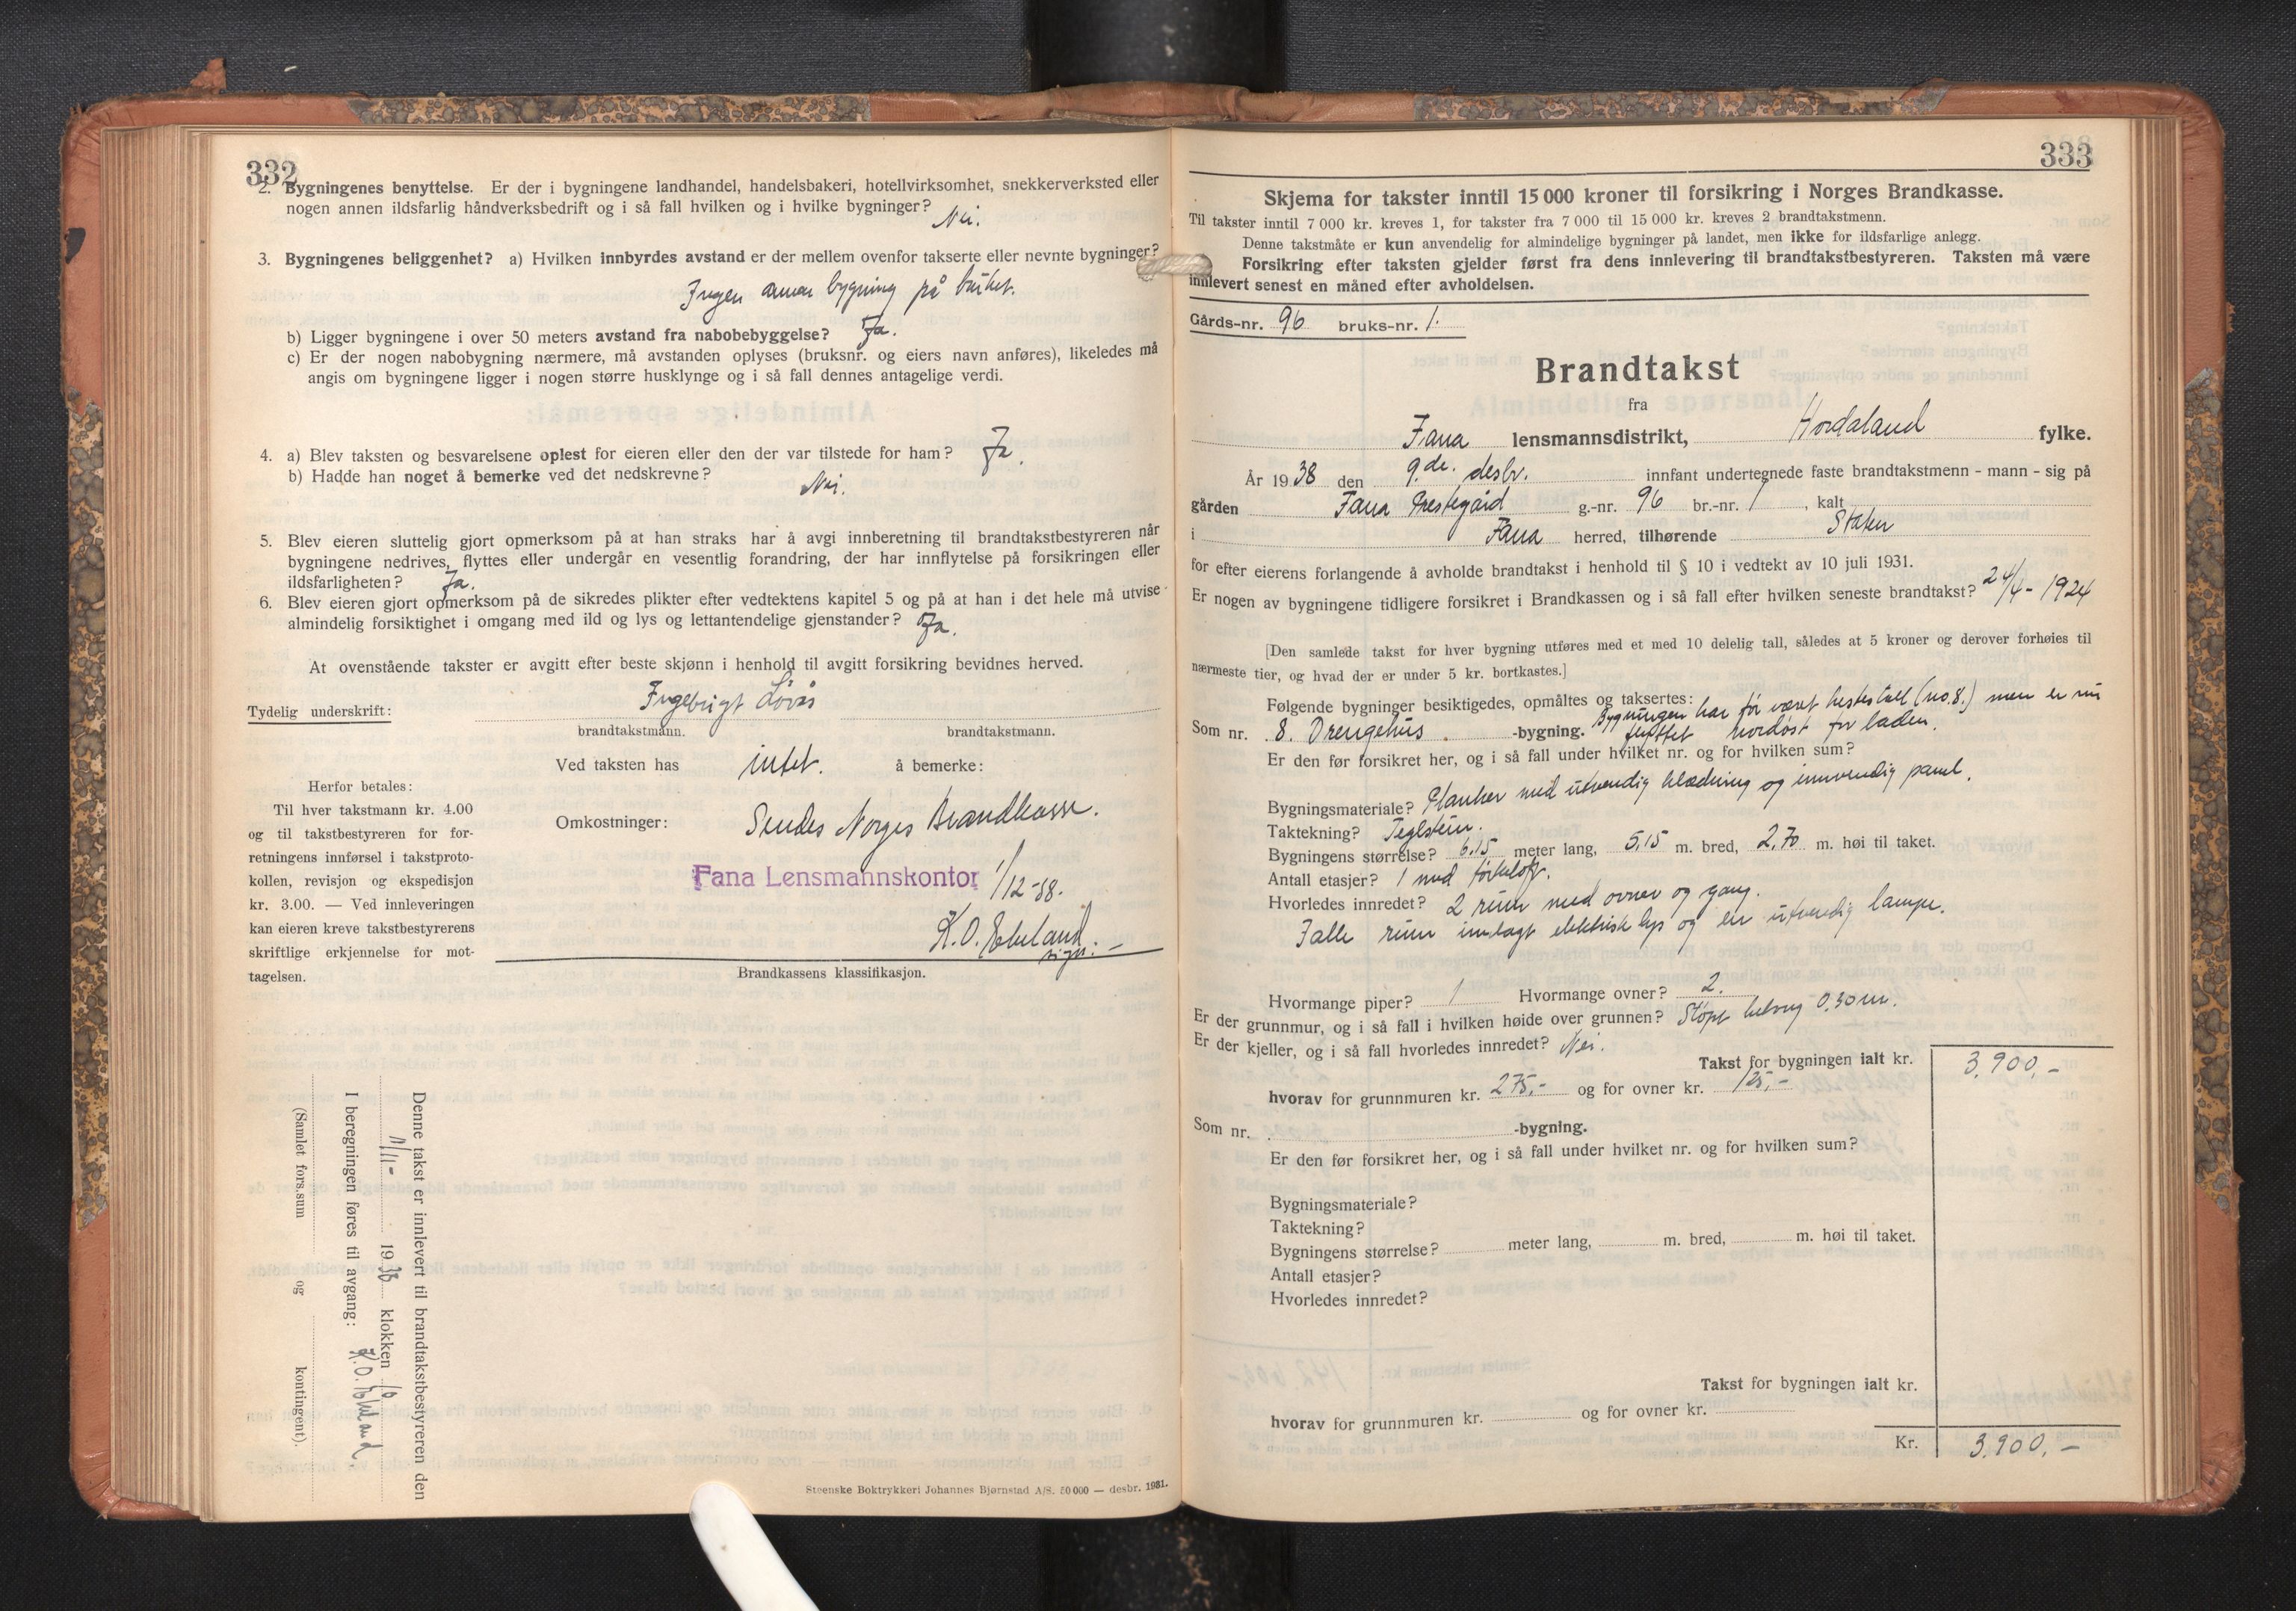 332
2. Bygningenes benyttelse. Er der i bygningene landhandel, handelsbakeri, hotellvirksomhet, snekkerverksted eller
nogen annen ildsfarlig håndverksbedrift og i så fall hvilken og i hvilke bygninger? Nei.
3. Bygningenes beliggenhet? a) Hvilken innbyrdes avstand er der mellem ovenfor takserte eller nevnte bygninger?
Ingen annen bygning på bruket.
b) Ligger bygningene i over 50 meters avstand fra nabobebyggelse? Ja.
c) Er der nogen nabobygning nærmere, må avstanden oplyses (bruksnr. og eiers navn anføres), likeledes må
angis om bygningene ligger i nogen større husklynge og i så fall dennes antagelige verdi.
4. a) Blev taksten og besvarelsene oplest for eieren eller den der var tilstede for ham? Ja.
b) Hadde han noget å bemerke ved det nedskrevne? Nei.
5. Blev eieren sluttelig gjort opmerksom på at han straks har å avgi innberetning til brandtakstbestyreren når
bygningene nedrives, flyttes eller undergår en vesentlig forandring, der har innflytelse på forsikringen eller
ildsfarligheten? Ja.
6. Blev eieren gjort opmerksom på de sikredes plikter efter vedtektens kapitel 5 og på at han i det hele må utvise
almindelig forsiktighet i omgang med ild og lys og lettantendelige gjenstander? Ja.
At ovenstående takster er avgitt efter beste skjønn i henhold til avgitt forsikring bevidnes herved.
Tydelig underskrift: Ingebrigt Løvås
brandtakstmann. brandtakstmann.
Ved taksten has intet. å bemerke:
Herfor betales:
Til hver takstmann kr. 4.00
og til takstbestyreren for for-
retningens innførsel i takstproto-
kollen, revisjon og ekspedisjon
kr. 3.00. — Ved innleveringen
kan eieren kreve takstbestyrerens
skriftlige erkjennelse for mot-
tagelsen.
Omkostninger: Sendes Norges Brandkasse.
Fana Lensmannskontor 1/12-38.
K. O. Ekeland.
sign.
Brandkassens klassifikasjon.
Denne takst er innlevert til brandtakstbestyreren den
11/11- 1938 klokken 10
I beregningen føres til avgang: K. O. Ekeland.
(Samlet fors.sum og kontingent).
Steenske Boktrykkeri Johannes Bjørnstad A/S. 50 000 — desbr. 1931.
333
Skjema for takster inntil 15 000 kroner til forsikring i Norges Brandkasse.
Til takster inntil 7 000 kr. kreves 1, for takster fra 7 000 til 15 000 kr. kreves 2 brandtakstmenn.
Denne takstmåte er kun anvendelig for almindelige bygninger på landet, men ikke for ildsfarlige anlegg.
Forsikring efter taksten gjelder først fra dens innlevering til brandtakstbestyreren. Taksten må være
innlevert senest en måned efter avholdelsen.
Gårds-nr. 96 bruks-nr. 1.
Brandtakst
fra
Fana lensmannsdistrikt, Hordaland fylke.
År 1938 den 9.de. desbr. innfant undertegnede faste brandtakstmenn - mann - sig på
gården Fana Prestegård g.-nr. 96 br.-nr. 1, kalt
i Fana herred, tilhørende Staten
for efter eierens forlangende å avholde brandtakst i henhold til § 10 i vedtekt av 10 juli 1931.
Er nogen av bygningene tidligere forsikret i Brandkassen og i så fall efter hvilken seneste brandtakst? 24/4-1924
[Den samlede takst for hver bygning utføres med et med 10 delelig tall, således at 5 kroner og derover forhøies til
nærmeste tier, og hvad der er under 5 kr. bortkastes.]
Følgende bygninger besiktigedes, opmåltes og taksertes:
Som nr. 8. Drengehus. -bygning. Bygningen har før været hestestall (no. 8.) men er nu
flyttet nordøst for laden.
Er den før forsikret her, og i så fall under hvilket nr. og for hvilken sum?
Bygningsmateriale? Planker med utvendig klædning og innvendig panel.
Taktekning? Teglstein.
Bygningens størrelse? 6,15 meter lang, 5,15 m. bred, 2,70 m. høi til taket.
Antall etasjer? 1 med
Hvorledes innredet? 2 rum med ovner og gang.
I alle rum innlagt elektrisk lys og en utvendig lampe.
Hvormange piper? 1 Hvormange ovner? 2.
Er der grunnmur, og i så fall i hvilken høide over grunnen? Støpt 0,30 m.
Er der kjeller, og i så fall hvorledes innredet? Nei.
Takst for bygningen ialt kr. 3.900,-
hvorav for grunnmuren kr. 275,- og for ovner kr. 125,-
Som nr. -bygning.
Er den før forsikret her, og i så fall under hvilket nr. og for hvilken sum?
Bygningsmateriale?
Taktekning?
Bygningens størrelse? meter lang, m. bred, m. høi til taket.
Antall etasjer?
Hvorledes innredet?
Takst for bygningen ialt kr.
hvorav for grunnmuren kr. og for ovner kr.
Kr. 3.900,-